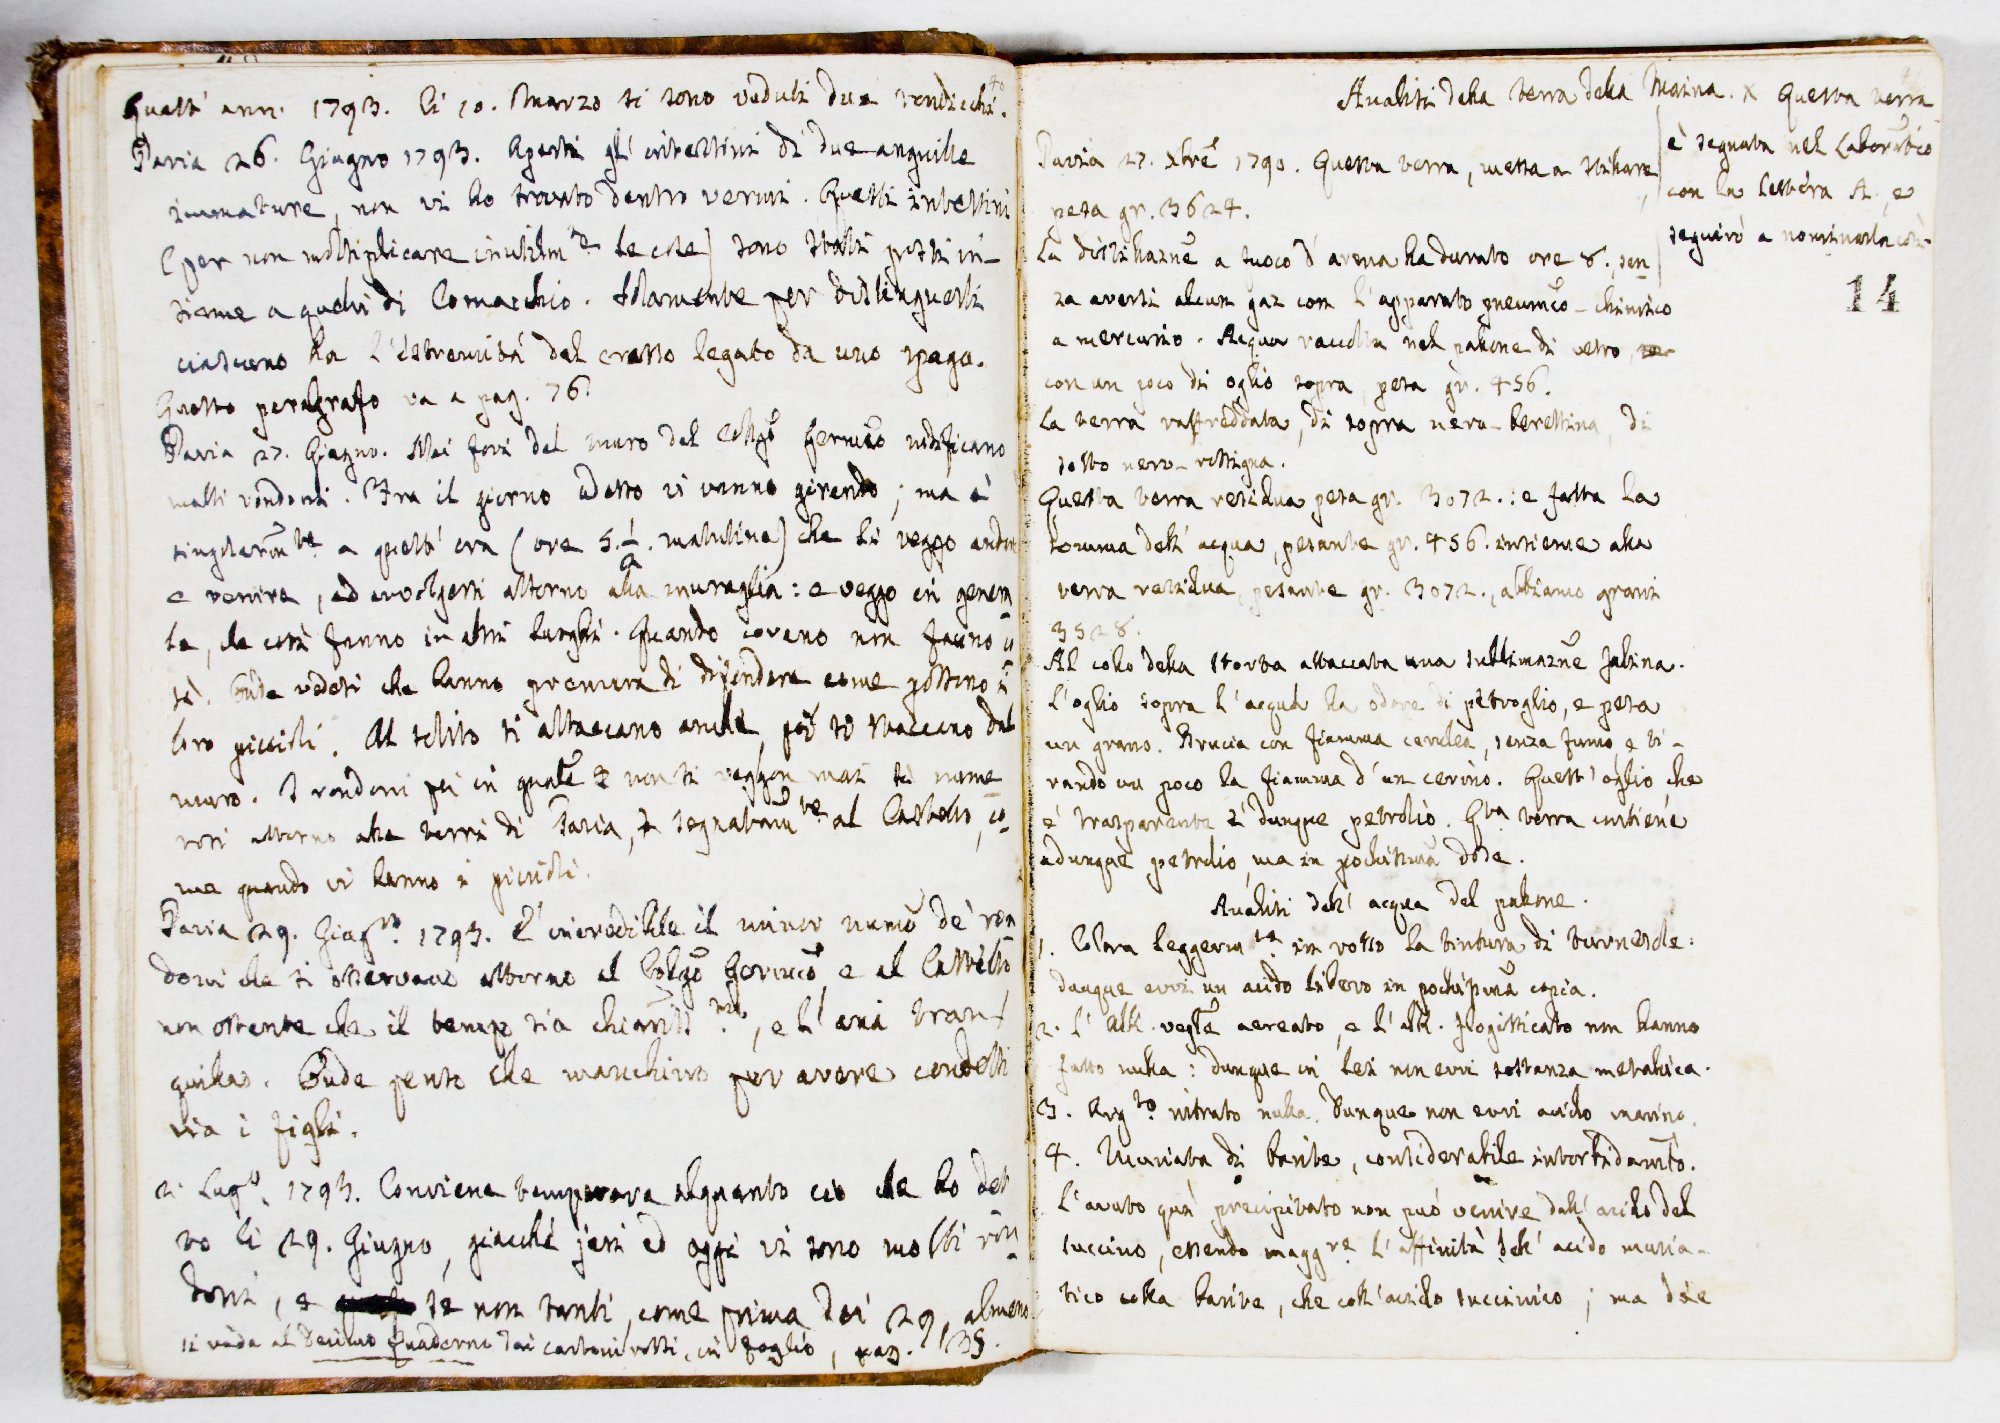 Quest' ann. 1793. li 10. Marzo si sono veduti due rondicchi.
Pavia 26. Giugno 1793. Aperti gl' intestini di due anguille
immature, non vi ho trovato dentro vermi. Questi intestini
(per non moltiplicare inutilm.te le cose) sono stati posti in-
sieme a quelli di Comacchio. Solamente per distinguerli
ciascuno ha l'estremità del crasso legato da uno spago.
Questo paragrafo va a pag. 76.
Pavia 27. Giugno. Nei fori del muro del Collg̃o Germico nidificano
molti rondoni. Fra il giorno adesso vi vanno girando; ma è
singolarm̃te a quest' ora (ore 5. 1/2. matutine) che li veggo andare
e venire, ed avvolgersi attorno alla muraglia: e veggo in genera
le, che così fanno in altri luoghi. Quando covano non fanno co
sì. Onde vedesi che hanno premura di difendere come possono i
loro piccioli. Al solito si attaccano anche, poi si staccano dal
muro. I rondoni poi in quale non si veggon mai sì nume
rosi attorno alle torri di Pavia, segnatam̃te al Castello, co
me quando vi hanno i piccioli.
Pavia 29. Giug.no 1793. È incredibile il minor num̃o de' ron
doni che si osservano attorno al Collg̃o Germico, e al Castello
non ostante che il tempo sia chiariss.mo, e l'aria tran-
quilla. Onde penso che manchino per avere condotti
via i figli.
2. Lug.o 1793. Conviene temperare alquanto ciò che ho det
to li 29. Giugno, giacchè jeri ed oggi vi sono molti ron
doni, e se non tanti, come prima dei 29, almeno
si vada al Decimo Quaderno dai cartoni rossi, in foglio, pag. 135.
Analisi della terra della Maina. x Questa terra
è segnata nel Laboratõio
con la lettera A., e
seguirò a nominarla così.
14
Pavia 27. Xbre 1790. Questa terra, messa a stillare,
pesa gr. 3624.
La distillaznẽ a fuoco d'arena ha durato ore 8., sen
za aversi alcun gaz con l'apparato pneumc̃o-chimico
a mercurio. Acqua raccolta nel pallone di vetro,
con un poco di oglio sopra, pesa gr. 456.
La terra raffreddata, di sopra nero-berettina, di
sotto nero-rossigna.
Questa terra residua pesa gr. 3072.: e fatta la
somma dell' acqua, pesante gr. 456. insieme alla
terra residua, pesante gr. 3072., abbiamo grani
3528.
Al collo della storta attaccata una sublimaznẽ salina.
L'oglio sopra l'acqua ha odore di petroglio, e pesa
un grano. Brucia con fiamma cerulea, senza fumo e ti-
rando un poco la fiamma d'un cerino. Quest' oglio che
è trasparente è dunque petrolio. Qta terra contiene
adunque petrolio, ma in pochissima dose.
Analisi dell' acqua del pallone.
1. Colora leggerm.te in rosso la tintura di turnesole:
dunque evvi un acido libero in pochissima copia.
2. L' alk. veglẽ aereato, e l'alk. flogisticato non hanno
fatto nulla: dunque in lei non evvi sostanza metallica.
3. Arg.to nitrato nulla. Dunque non evvi acido marino.
4. Muriata di barite, considerabile intorbidamt̃o.
L'avuto quà precipitato non può venire dall' acido del
succino, essendo magg.re l'affinità dell' acido muria-
tico colla barite, che coll' acido succinico; ma dee